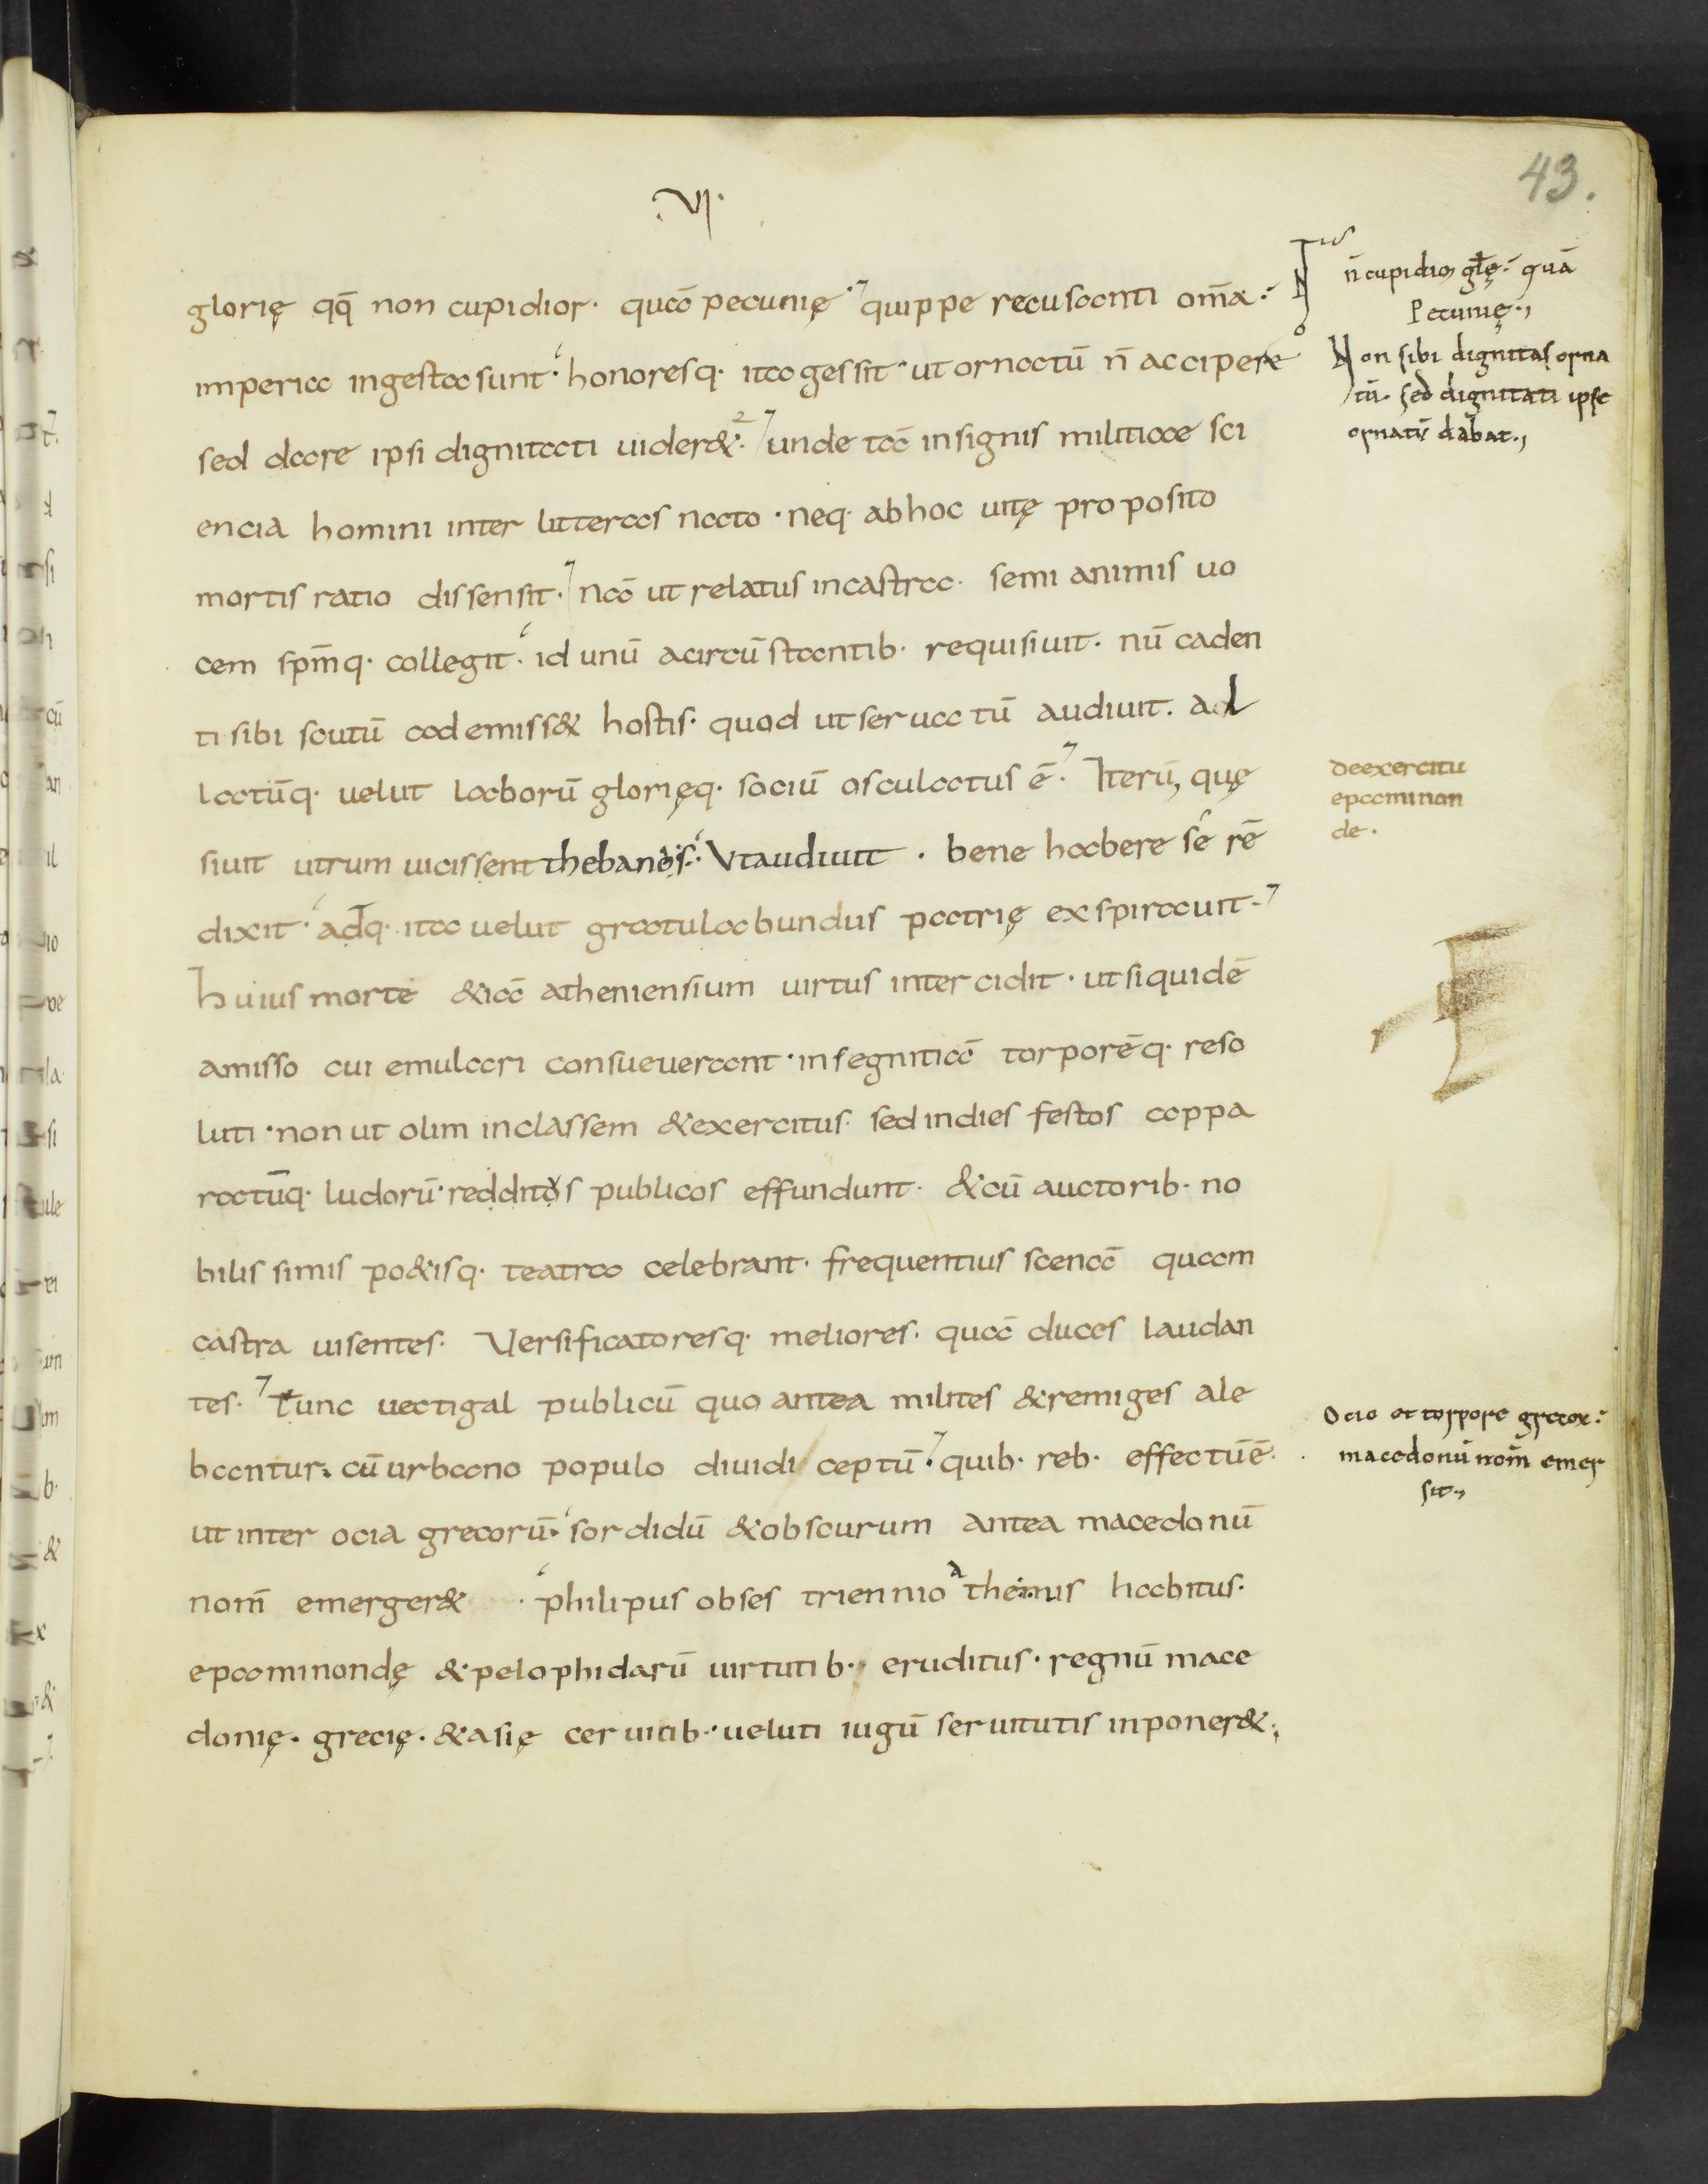 .VI.
43.
glorię qq̄ non cupidior· quā pecunię· quippe recusanti om̄a·
imperia ingesta sunt· honoresq· ita gessit· ut ornatū n̄ accipere
sed dare ipsi dignitati uider&· unde tā insignis militiae sci
encia homini inter litteras nato· neq· ab hoc uitę proposito
mortis ratio dissensit· nā ut relatus in castra· semi animis uo
cem sp̄mq· collegit· id unū a circū stantib· requisiuit· nū caden
ti sibi scutū ademiss& hostis· quod ut seruatū audiuit· ad
latūq· uelut laborū glorięq· sociū osculatus ē· Iterū, quę
siuit utrum uicissent thebanos· Vt audiuit · bene habere se rē
dixit· adq· ita uelut gratulabundus patrię exspirauit·
Huius morte &iā atheniensium uirtus intercidit· ut siquidē
amisso cui emulari consueuerant· in segnitiā torporēq· reso
luti· non ut olim in classem & exercitus· sed in dies festos appa
ratūq· ludorū· redditos publicos effundunt· & cū auctorib· no
bilissimis po&isq· teatra celebrant· frequentius scenā quam
castra uisentes· Versificatoresq· meliores· quā duces laudan
tes· Tunc uectigal publicū quo antea milites & remiges ale
bantur· cū urbano populo diuidi ceptū· quib· reb· effectū ē·
ut inter ocia grecorū· sordidū & obscurum antea macedonū
nom̄ emerger& · philipus obses triennio athenis habitus·
epaminondę & pelophidarū uirtutib· eruditus· regnū mace
donię· grecię· & asię ceruicib· ueluti iugū seruitutis inponer&·
n̄ cupidior gl̄ę· quā
Pecunię·,
Non sibi dignitas orna
tū· sed dignitati ipse
ornatū dabat·,
de exercitu
epaminon
de·
Ocio et torpore grecor·
macedonū nom̄ emer
sit·,